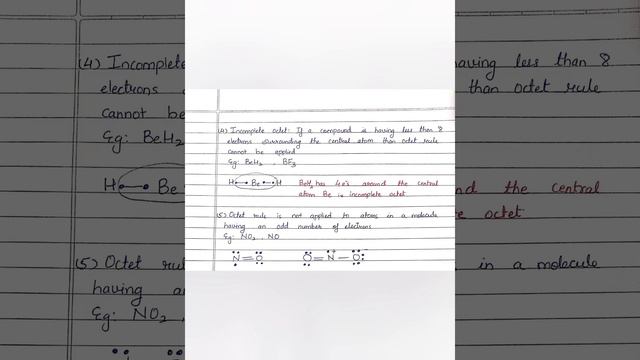 (4) Incomplete octet: If a compound is having less than 8
electrons surrounding the central atom than octet rule
cannot be applied
Eg: BeH2 , BF3
H Be H BeH2 has 4e's around the central
atom Be is incomplete octet
(5) Octet rule is not applied to atoms in a molecule
having an odd number of electrons
Eg: NO2 , NO
N=O O=N-O
(4) Incomplete
electrons
cannot be
Eg: BeH2
H Be
(5) Octet rul
having an
Eg: NO2 ,
having less than 8
than octet rule
nd the central
e octet
in a molecule